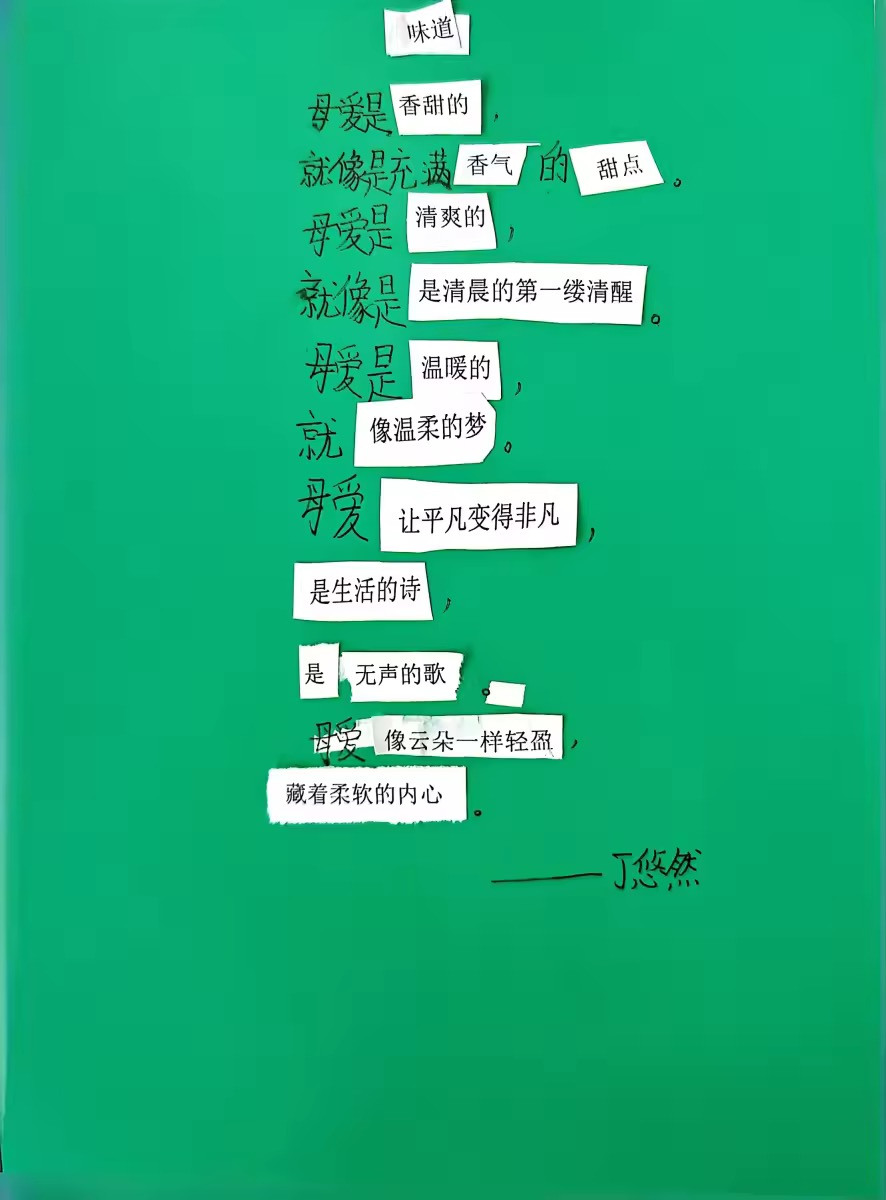 味道
母爱是香甜的，
就像是充满香气的甜点。
母爱是清爽的，
就像是是清晨的第一缕清醒。
母爱是温暖的，
就像温柔的梦。
母爱让平凡变得非凡，
是生活的诗，
是无声的歌。
母爱像云朵一样轻盈，
藏着柔软的内心。
——丁悠然